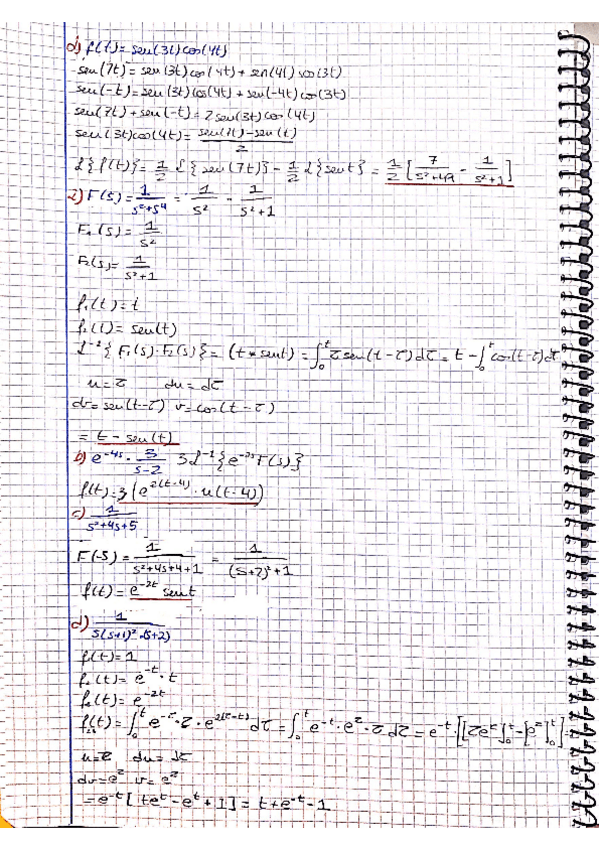 d) f(t) = sen(3t)cos(4t)
sen(7t) = sen(3t)cos(4t) + sen(4t)cos(3t)
sen(-t) = sen(3t)cos(4t) + sen(-4t)cos(3t)
sen(7t) + sen(-t) = 2sen(3t)cos(4t)
sen(3t)cos(4t) = (sen(7t) - sen(t))/2
ℒ{f(t)} = 1/2 ℒ{sen(7t)} - 1/2 ℒ{sent} = 1/2 [7/(s²+49) - 1/(s²+1)]
2) F(s) = 1/(s²+s⁴) = 1/s² - 1/(s²+1)
F₁(s) = 1/s²
F₂(s) = 1/(s²+1)
f₁(t) = t
f₂(t) = sen(t)
ℒ⁻¹{F₁(s)·F₂(s)} = (t * sent) = ∫₀ᵗ τ sen(t-τ)dτ = t - ∫₀ᵗ cos(t-τ)dτ
u = τ du = dτ
dv = sen(t-τ) v = cos(t-τ)
= t - sen(t)
b) e^(-4s) · 3/(s-2) 3ℒ⁻¹{e^(-2s) F(s)}
f(t) = 3(e^(2(t-4)) · u(t-4))
c) 1/(s²+4s+5)
F(s) = 1/(s²+4s+4+1) = 1/((s+2)²+1)
f(t) = e^(-2t) sent
d) 1/(s(s+1)²·(s+2))
f(t) = 1
f₁(t) = e^(-t) · t
f₂(t) = e^(-2t)
f(t) = ∫₀ᵗ e^(-τ) · τ · e^(2(τ-t)) dτ = ∫₀ᵗ e^(-t) · e^τ · τ dτ = e^(-t) · [[τe^τ]₀ᵗ - [e^τ]₀ᵗ]
u = τ du = dτ
dv = e^τ v = e^τ
= e^(-t) [te^t - e^t + 1] = t + e^(-t) - 1